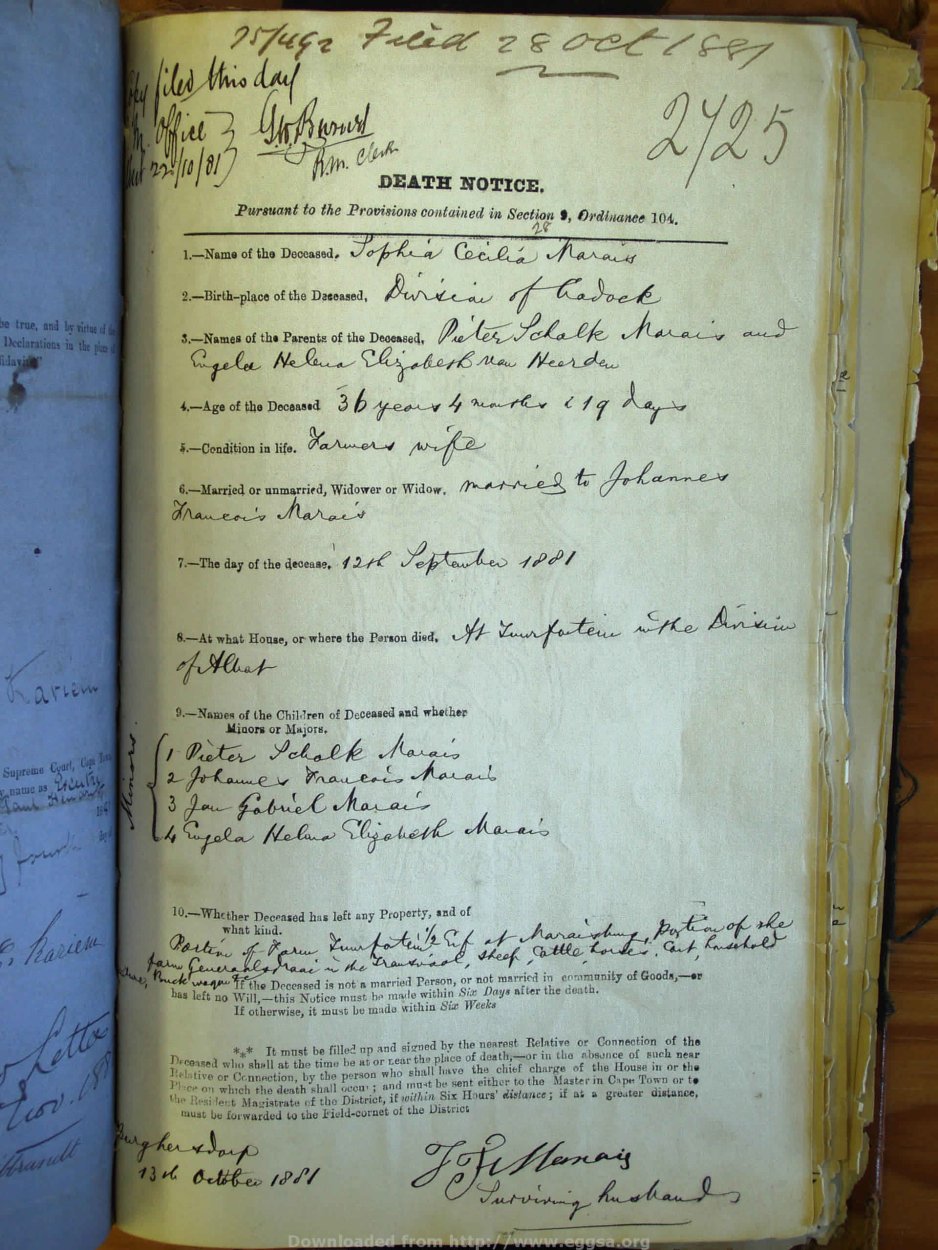 Filed 28 Oct 1881
Copy filed this day
Office
22/10/81
R.M. Clerk
2725
DEATH NOTICE.
Pursuant to the Provisions contained in Section 9, Ordinance 104.
28
1.—Name of the Deceased. Sophia Cecilia Marais
2.—Birth-place of the Deceased, Division of Cradock
3.—Names of the Parents of the Deceased, Pieter Schalk Marais and
Engela Helena Elizabeth van Heerden
4.—Age of the Deceased 36 years 4 months & 19 days
5.—Condition in life. Farmers wife
6.—Married or unmarried, Widower or Widow, married to Johannes
Francois Marais
7.—The day of the decease. 12th September 1881
8.—At what House, or where the Person died, At in the Division
of Albert
9.—Names of the Children of Deceased and whether
Minors or Majors.
Minors
1 Pieter Schalk Marais
2 Johannes Francois Marais
3 Jan Gabriel Marais
4 Engela Helena Elizabeth Marais
10.—Whether Deceased has left any Property, and of
what kind.
Portion of Farm 1/2 Erf at Maraisburg, Portion of the
farm in the Transvaal, Sheep, Cattle, horses, Cart, household
Buck wagon &c
If the Deceased is not a married Person, or not married in community of Goods,—or
has left no Will,—this Notice must be made within Six Days after the death.
If otherwise, it must be made within Six Weeks
*** It must be filled up and signed by the nearest Relative or Connection of the
Deceased who shall at the time be at or near the place of death,—or in the absence of such near
Relative or Connection, by the person who shall have the chief charge of the House in or the
Place on which the death shall occur; and must be sent either to the Master in Cape Town or to
the Resident Magistrate of the District, if within Six Hours' distance; if at a greater distance,
must be forwarded to the Field-cornet of the District
Burghersdorp
13th October 1881
J F Marais
Surviving husband
be true, and by virtue of the
Declarations in the place of
Supreme Court, Cape Town
name as
fourth
Nov.
Downloaded from http://www.eggsa.org